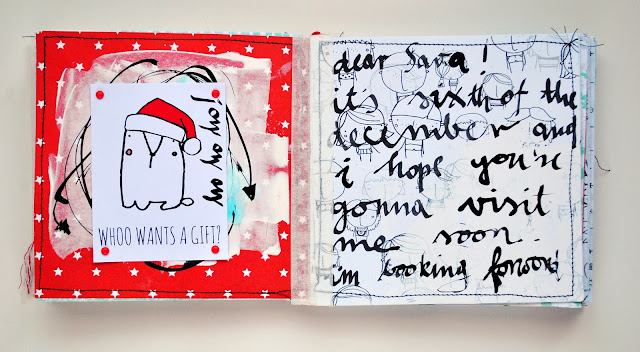 WHOO WANTS A GIFT?
dear
its sixth of the
december and
i hope you're
gonna visit
me soon.
im looking